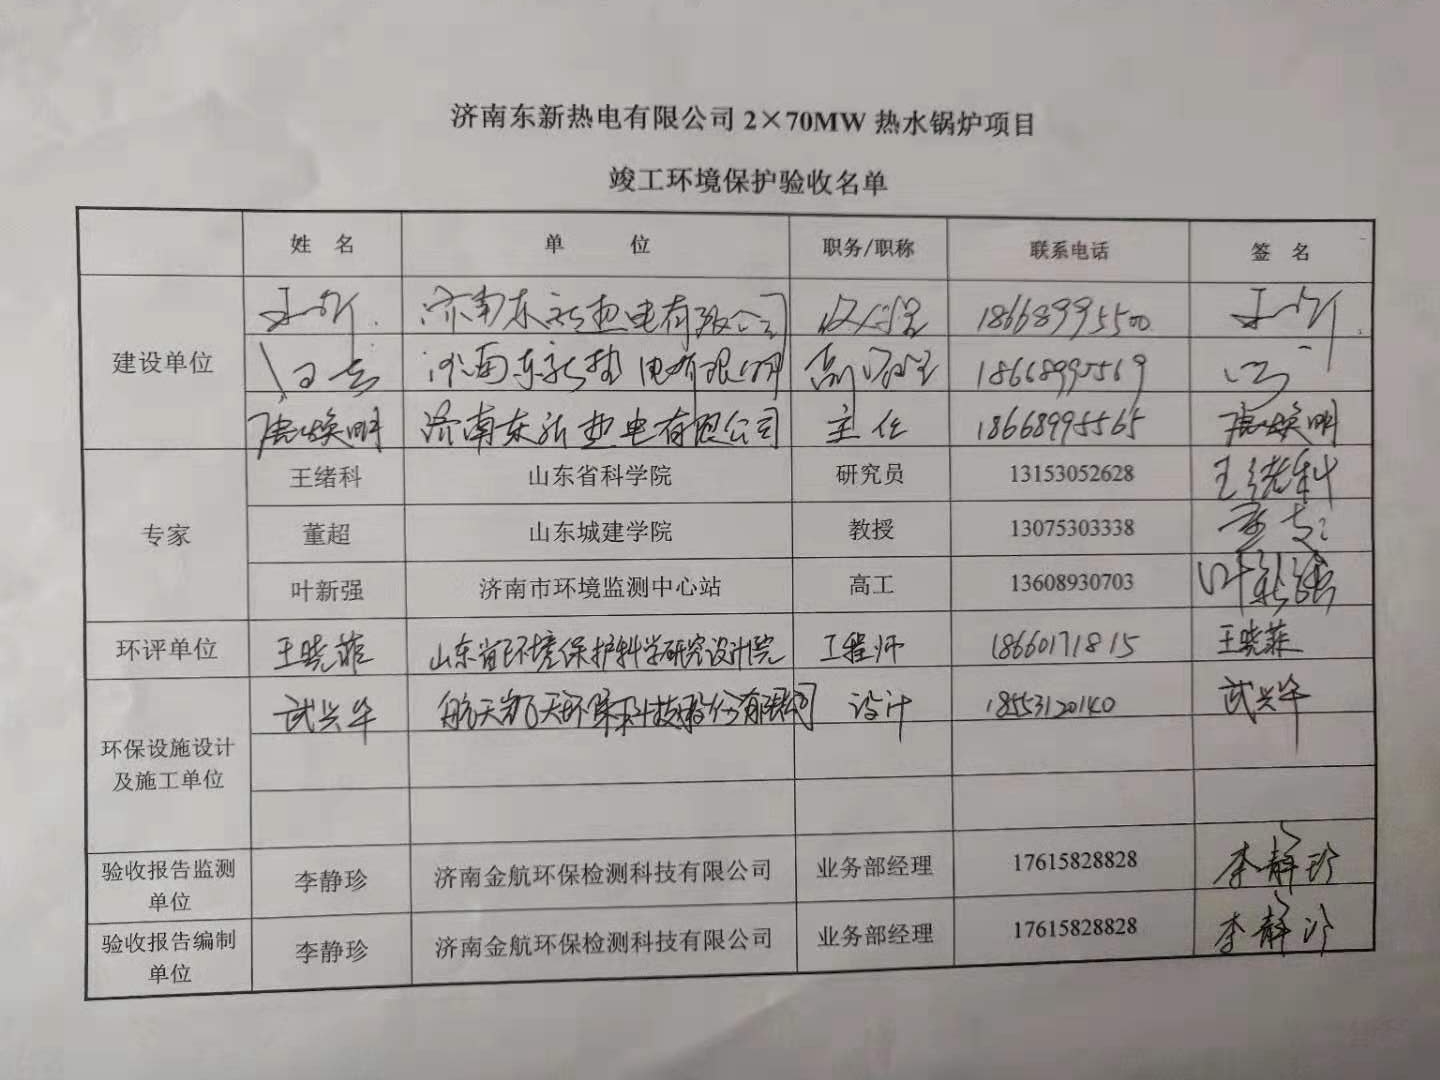 济南东新热电有限公司2×70MW热水锅炉项目
竣工环境保护验收名单
姓 名 单 位 职务/职称 联系电话 签 名
建设单位
济南东新热电有限公司 18668995500
济南东新热电有限公司 18668995569
唐焕明 济南东新热电有限公司 主任 18668995565 唐焕明
专家
王绪科 山东省科学院 研究员 13153052628 王绪科
董超 山东城建学院 教授 13075303338 董超
叶新强 济南市环境监测中心站 高工 13608930703 叶新强
环评单位 王晓菲 山东省环境保护科学研究设计院 工程师 18660171815 王晓菲
环保设施设计
及施工单位
武兴华 航天凯天环保科技股份有限公司 设计 18553120140 武兴华
验收报告监测
单位
李静珍 济南金航环保检测科技有限公司 业务部经理 17615828828 李静珍
验收报告编制
单位
李静珍 济南金航环保检测科技有限公司 业务部经理 17615828828 李静珍